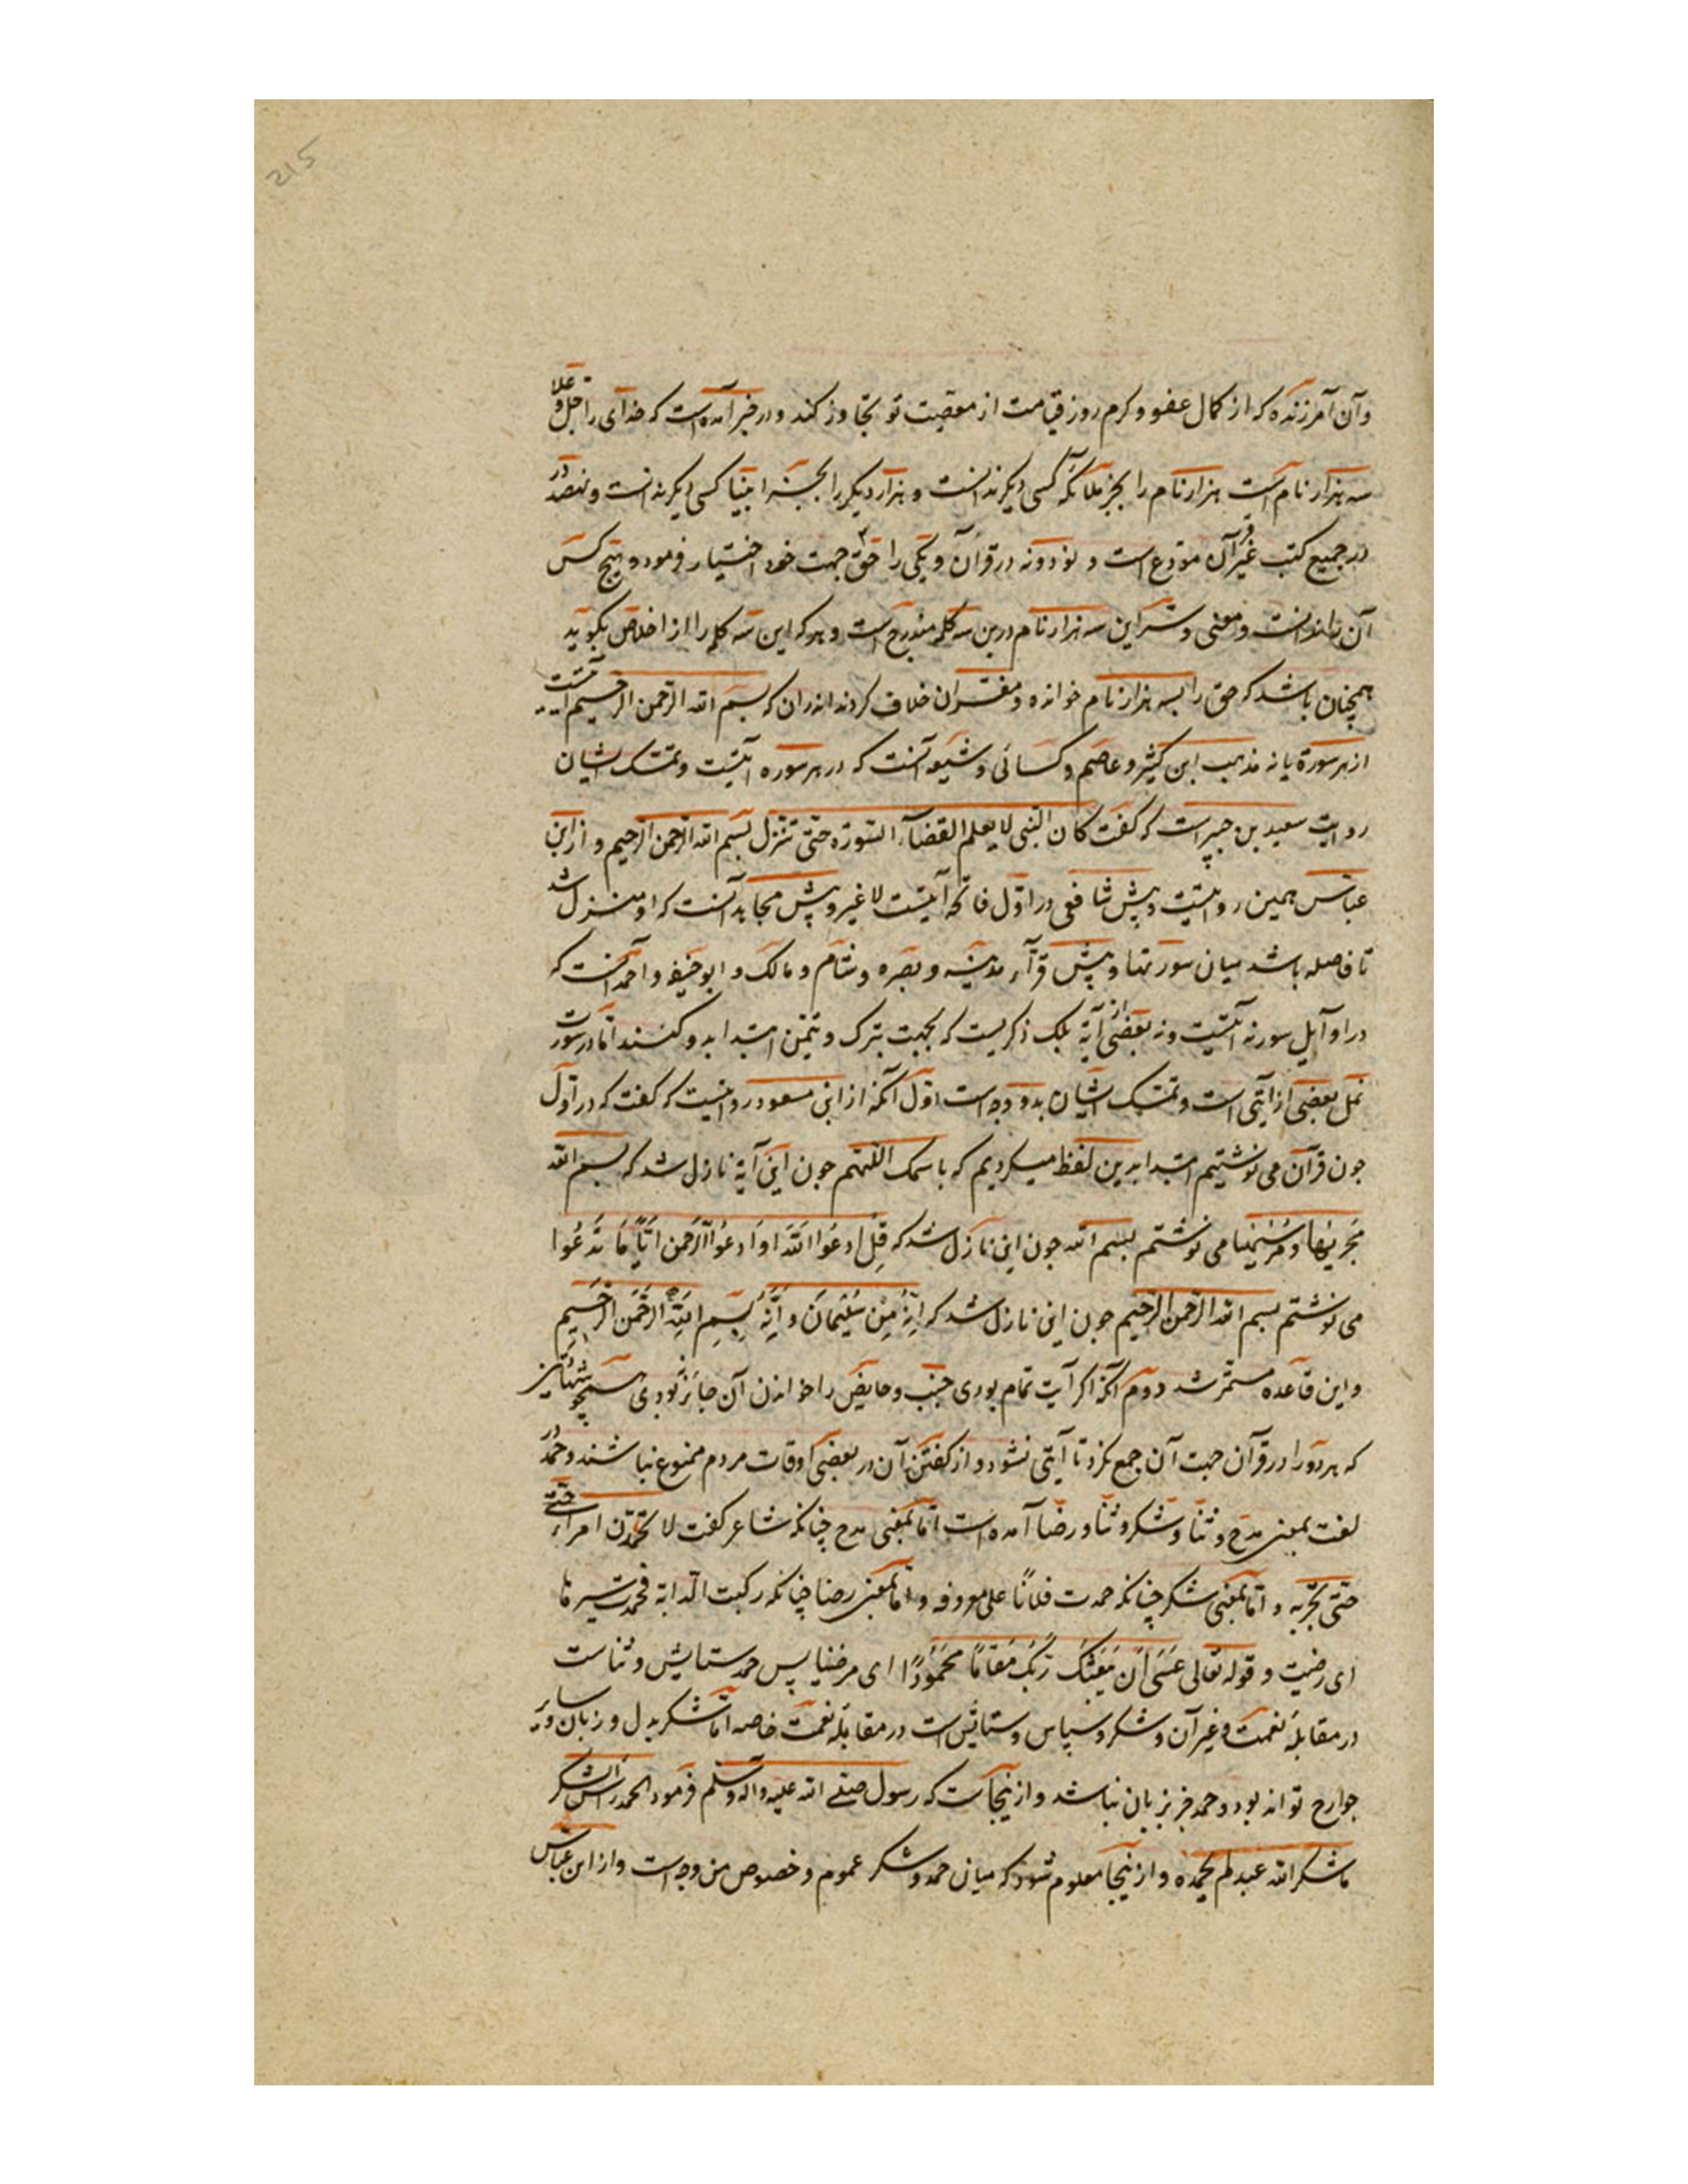 215
وآن آمرزنده که از کمال عفو و کرم روز قیامت از معصیت تو تجاوز کند و در خبر آمده است که خدای را جل و علا
سه هزار نام است هزار نام را بجز ملائکه کسی دیگر ندانست و هزار دیگر را بجز انبیا کسی دیگر ندانست و نهصد
در جمیع کتب غیر قرآن مودع است و نود و نه در قرآن و یکی را حق جهت خود اختیار فرمود و هیچ کس
آن را ندانست و معنی و سر این سه هزار نام درین سه کلمه مندرج است و هر که این سه کلمه را از اخلاص بگوید
همچنان باشد که حق را بسه هزار نام خوانده و مفسران خلاف کردند اندران که بسم الله الرحمن الرحیم آیتست
از هر سورة یا نه مذهب ابن کثیر و عاصم و کسائی و شیعه آنست که در هر سوره آیتیست و تمسک ایشان
روایت سعید بن جبیر است که گفت کان النبی لا یعلم القضاء السورة حتی تنزل بسم الله الرحمن الرحیم و از ابن
عباس همین روایتیست و پیش شافعی در اول فاتحه آیتست لا غیر و پیش مجاهد آنست که او منزل شد
تا فاصله باشد میان سورتها و پیش قرآء مدینه و بصره و شام و مالک و ابو حنیفه و احمد آنست که
در اوآیل سور نه آیتیست و نه بعضی از آیة بلک ذکریست که بجهت تبرک و تیمن ابتدا بدو کنند اما در سورت
نمل بعضی از آیتی است و تمسک ایشان بدو وجه است اول آنکه از ابن مسعود روایتیست که گفت که در اول
جون قرآن می نوشتیم ابتدا بدین لفظ میکردیم که باسمک اللهم جون این آیة نازل شد که بسم الله
مجریها و مرسیها می نوشتم بسم الله جون این نازل شد که قل ادعوا الله او ادعوا الرحمن ایا ما تدعوا
می نوشتم بسم الله الرحمن الرحیم جون این نازل شد که انه من سلیمان و انه بسم الله الرحمن الرحیم
و این قاعده مستمر شد دوم آنکه اگر آیت تمام بودی جنب و حایض را خواندن آن جایز نبودی
که هر دو را در قرآن جهت آن جمع نکرد تا آیتی نشود و از گفتن آن در بعضی اوقات مردم ممنوع نباشند و حمد در
لغت بمعنی مدح و ثنا و شکر و ثنا و رضا آمده است اما بمعنی مدح چنانکه شاعر گفت لا تحمدن امراء حتی
حتی تجربه و اما بمعنی شکر چنانکه حمدت فلانا علی معروفه و اما بمعنی رضا چنانکه رکبت الدابه فحمدت سیرها
ای رضیت و قوله تعالی عسی ان یبعثک ربک مقاما محمودا ای مرضیا پس حمد ستایش و ثناست
در مقابله نعمت و غیر آن و شکر و سپاس و ستایش است در مقابله نعمت خاصه اما شکر بدل و زبان و سایر
جوارح تواند بود و حمد جز بزبان نباشد و از ینجاست که رسول صلی الله علیه و آله و سلم فرمود الحمد راس الشکر
ما شکر الله عبد لم یحمده و از ینجا معلوم شود که میان حمد و شکر عموم و خصوص من وجه است و از ابن عباس